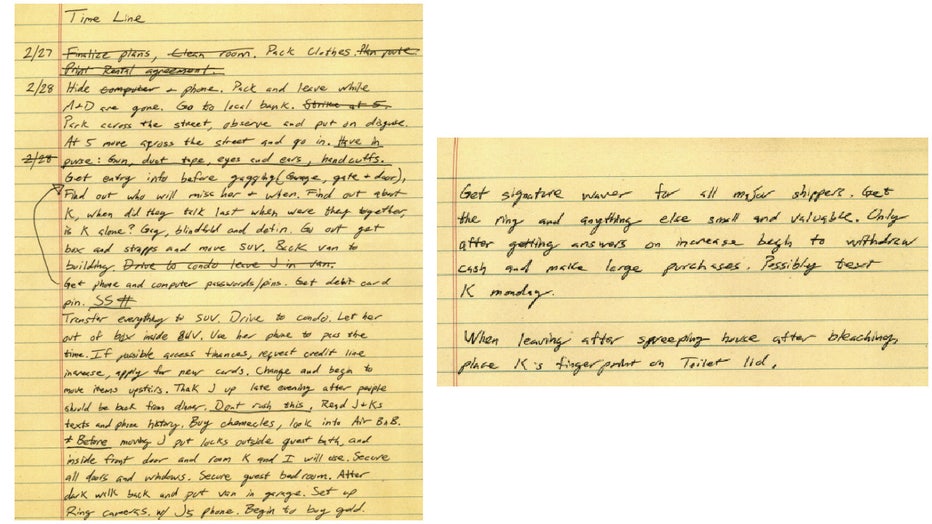 Time Line
2/27 Finalize plans, Clean room. Pack Clothes. Plan route
Print Rental agreement.
2/28 Hide computer + phone. Pack and leave while
M+D are gone. Go to local bank. Strike at 5.
Park across the street, observe and put on disguse.
At 5 move across the street and go in. Have in
2/28 purse: Gun, duct tape, eyes and ears, handcuffs.
Get entry info before gagging (Garage, gate + door),
Find out who will miss her + when. Find out about
K, when did they talk last when were they together,
is K alone? Gag, blindfold and detin. Go out get
box and strapps and move SUV. Back van to
building. Drive to condo leave J in van.
Get phone and computer passwords/pins. Get debit card
pin. SS#
Transfer everything to SUV. Drive to condo. Let her
out of box inside SUV. Use her phone to pass the
time. If possible access finances, request credit line
increase, apply for new cards. Change and begin to
move items upstirs. Thak J up late evening after people
should be back from dinner. Dont rush this, Read J+Ks
texts and phone history. Buy chemecles, look into Air BnB.
* Before moving J put locks outside guest bath, and
inside front door and room K and I will use. Secure
all doors and windows. Secure guest bedroom. After
dark walk back and put van in garage. Set up
Ring cameras. w/ Js phone. Begin to buy gold.
Get signature waver for all major shippers. Get
the ring and anything else small and valuable. Only
after getting answers on increase begin to withdraw
cash and make large purchases. Possibly text
K monday.
When leaving after spreeping house after bleaching,
place K's fingerprint on Toilet lid.